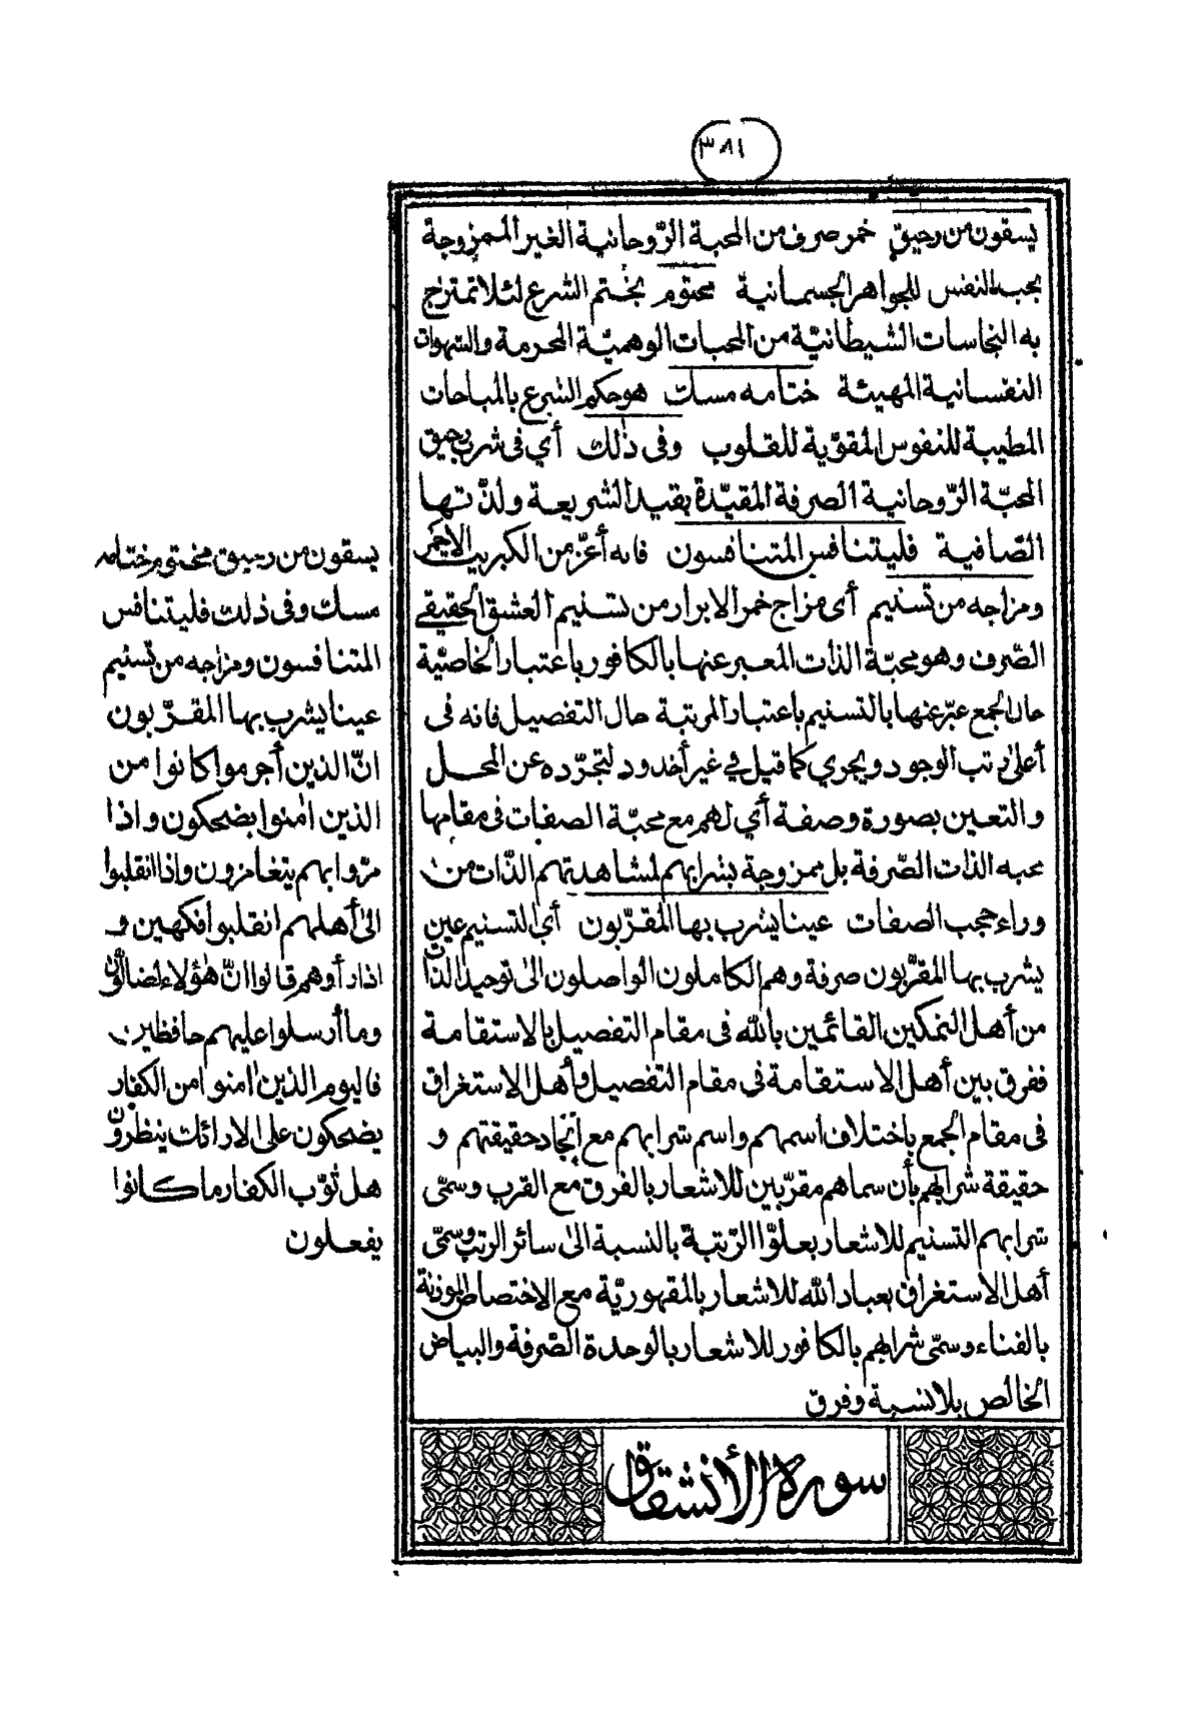 ٣٨١
يسقون من رحيق خمر صرف من المحبة الرّوحانية الغير الممزوجة
بحب النفس للجواهر الجسمانية مختوم بختم الشرع لئلا تمتزج
به النجاسات الشيطانيّة من المحبات الوهميّة المحرمة والشهوات
النفسانية المهيئة ختامه مسك هو حكم الشرع بالمباحات
المطيبة للنفوس المقوّية للقلوب وفى ذلك أي فى شرب رحيق
المحبّة الرّوحانية الصرفة المقيّدة بقيد الشريعة ولذّتها
الصّافية فليتنافس المتنافسون فانه أعزّ من الكبريت الاحمر
ومزاجه من تسنيم أى مزاج خمر الابرار من تسنيم العشق الحقيقي
الصّرف وهو محبّة الذات المعبر عنها بالكافور باعتبار الخاصيّة
حال الجمع عبّر عنها بالتسنيم باعتبار المرتبة حال التفصيل فانه فى
أعلى رتب الوجود ويجري كما قيل في غير أخدود لتجرّده عن المحل
والتعين بصورة وصفة أي لهم مع محبّة الصفات فى مقامها
محبه الذات الصّرفة بل ممزوجة بشرابهم لمشاهدتهم الذّات من
وراء حجب الصفات عينا يشرب بها المقرّبون أي التسنيم عين
يشرب بها المقرّبون صرفة وهم الكاملون الواصلون الى توحيد الذات
من أهل التمكين القائمين بالله فى مقام التفصيل بالاستقامة
ففرق بين أهل الاستقامة فى مقام التفصيل وأهل الاستغراق
فى مقام الجمع باختلاف اسمهم واسم شرابهم مع اتحاد حقيقتهم و
حقيقة شرابهم بأن سماهم مقرّبين للاشعار بالفرق مع القرب وسمّى
شرابهم التسنيم للاشعار بعلوّ الرّتبة بالنسبة الى سائر الرتب وسمّى
أهل الاستغراق بعباد الله للاشعار بالمقهوريّة مع الاختصاص الموذنة
بالفناء وسمّى شرابهم بالكافور للاشعار بالوحدة الصّرفة والبياض
الخالص بلا نسبة وفرق
سورة الأنشقاق
يسقون من رحيق مختوم ختامه
مسك وفى ذلك فليتنافس
المتنافسون ومزاجه من تسنيم
عينا يشرب بها المقرّبون
انّ الذين أجرموا كانوا من
الذين امنوا يضحكون واذا
مرّوا بهم يتغامزون واذا انقلبوا
الى أهلهم انقلبوا فكهين و
اذا رأوهم قالوا انّ هؤلاء لضالّون
وما أرسلوا عليهم حافظين
فاليوم الذين امنوا من الكفار
يضحكون على الارائك ينظرون
هل ثوّب الكفار ما كانوا
يفعلون